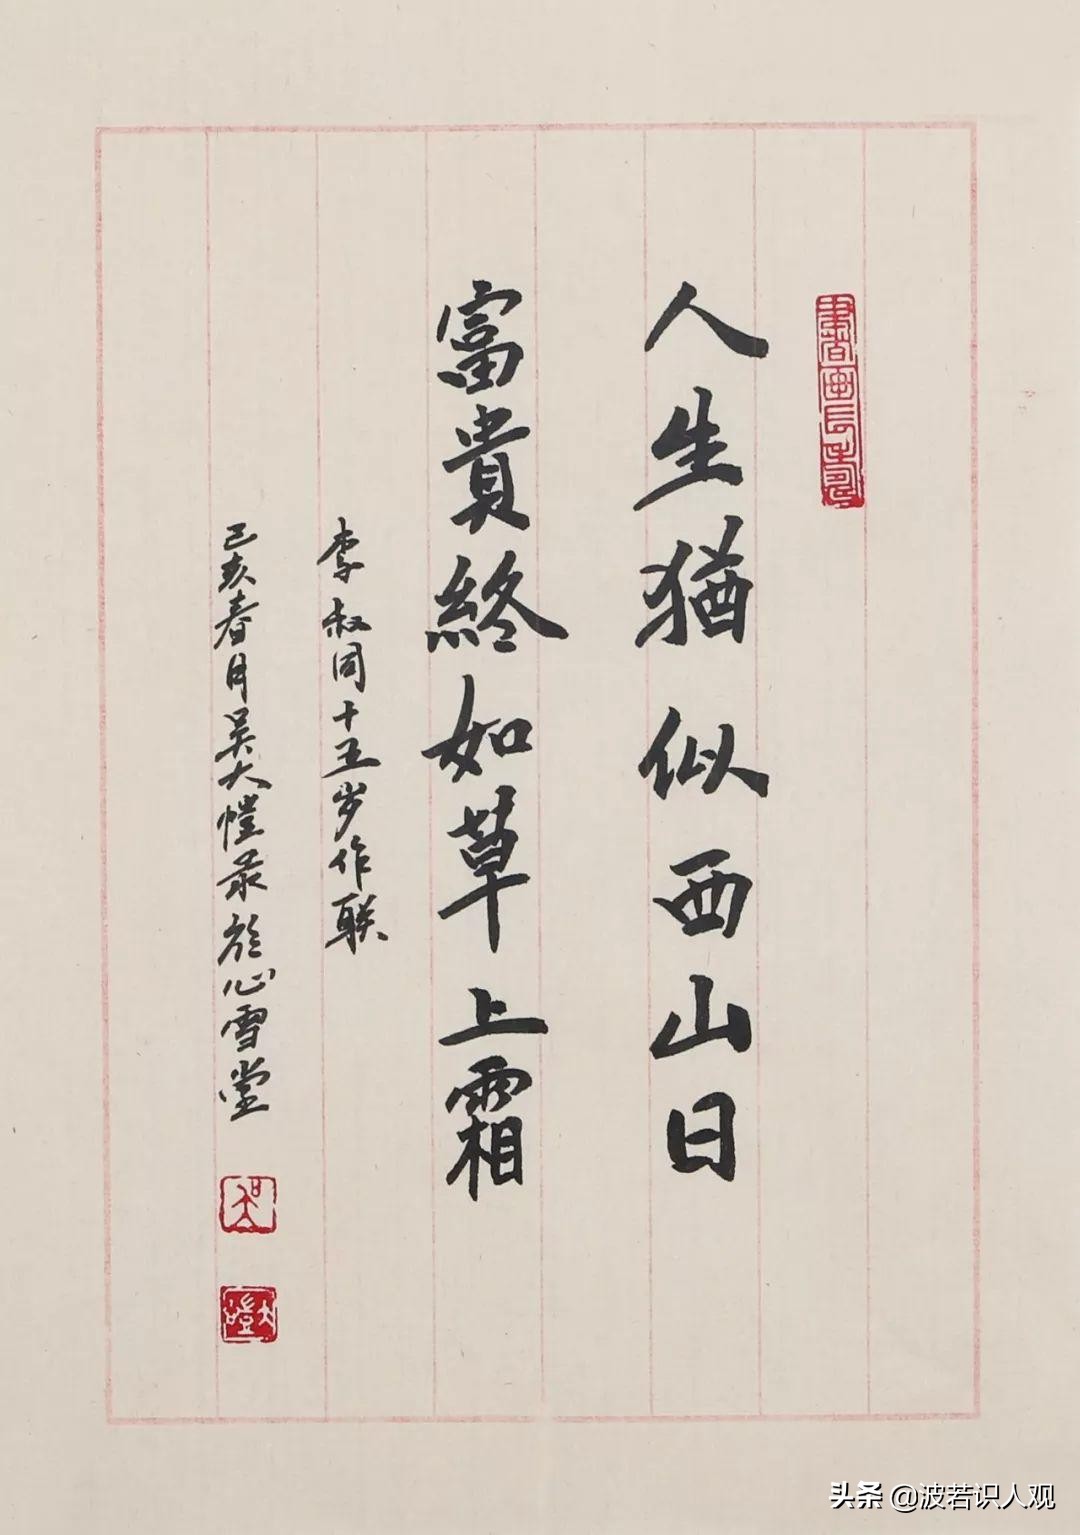 人生猶似西山日
富貴終如草上霜
李叔同十五岁作联
己亥春月吴大愷录於心雪堂
头条 @波若识人观